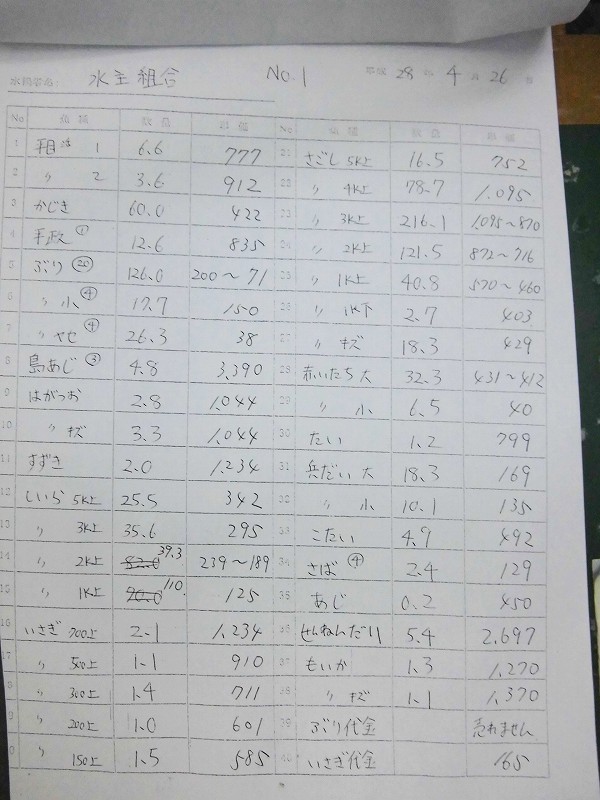 水揚者名 水主組合 No.1 平成 28 年 4 月 26 日
No 魚種 数量 単価
1 1 6.6 777
2 〃 2 3.6 912
3 かじき 60.0 422
4 ① 12.6 835
5 ぶり ⑳ 126.0 200〜71
6 〃 小 ④ 17.7 150
7 〃 ヤセ ④ 26.3 38
8 島あじ ③ 4.8 3,390
9 はがつお 2.8 1,044
10 〃 キズ 3.3 1,044
11 すずき 2.0 1,234
12 しいら 5K上 25.5 342
13 〃 3K上 35.6 295
14 〃 2K上 52.0 39.3 239〜189
15 〃 1K上 90.0 110. 125
16 いさぎ 700上 2.1 1,234
17 〃 500上 1.1 910
18 〃 300上 1.4 711
19 〃 200上 1.0 601
20 〃 150上 1.5 585
No 魚種 数量 単価
21 さごし 5K上 16.5 752
22 〃 4K上 78.7 1,095
23 〃 3K上 216.1 1,095〜870
24 〃 2K上 121.5 872〜716
25 〃 1K上 40.8 570〜460
26 〃 1K下 2.7 403
27 〃 キズ 18.3 429
28 赤いたち 大 32.3 431〜412
29 〃 小 6.5 40
30 たい 1.2 799
31 兵だい 大 18.3 169
32 〃 小 10.1 135
33 こたい 4.9 492
34 さば ④ 2.4 129
35 あじ 0.2 450
36 せんねんだい 5.4 2,697
37 もいか 1.3 1,270
38 〃 キズ 1.1 1,370
39 ぶり代金 売れません
40 いさぎ代金 165